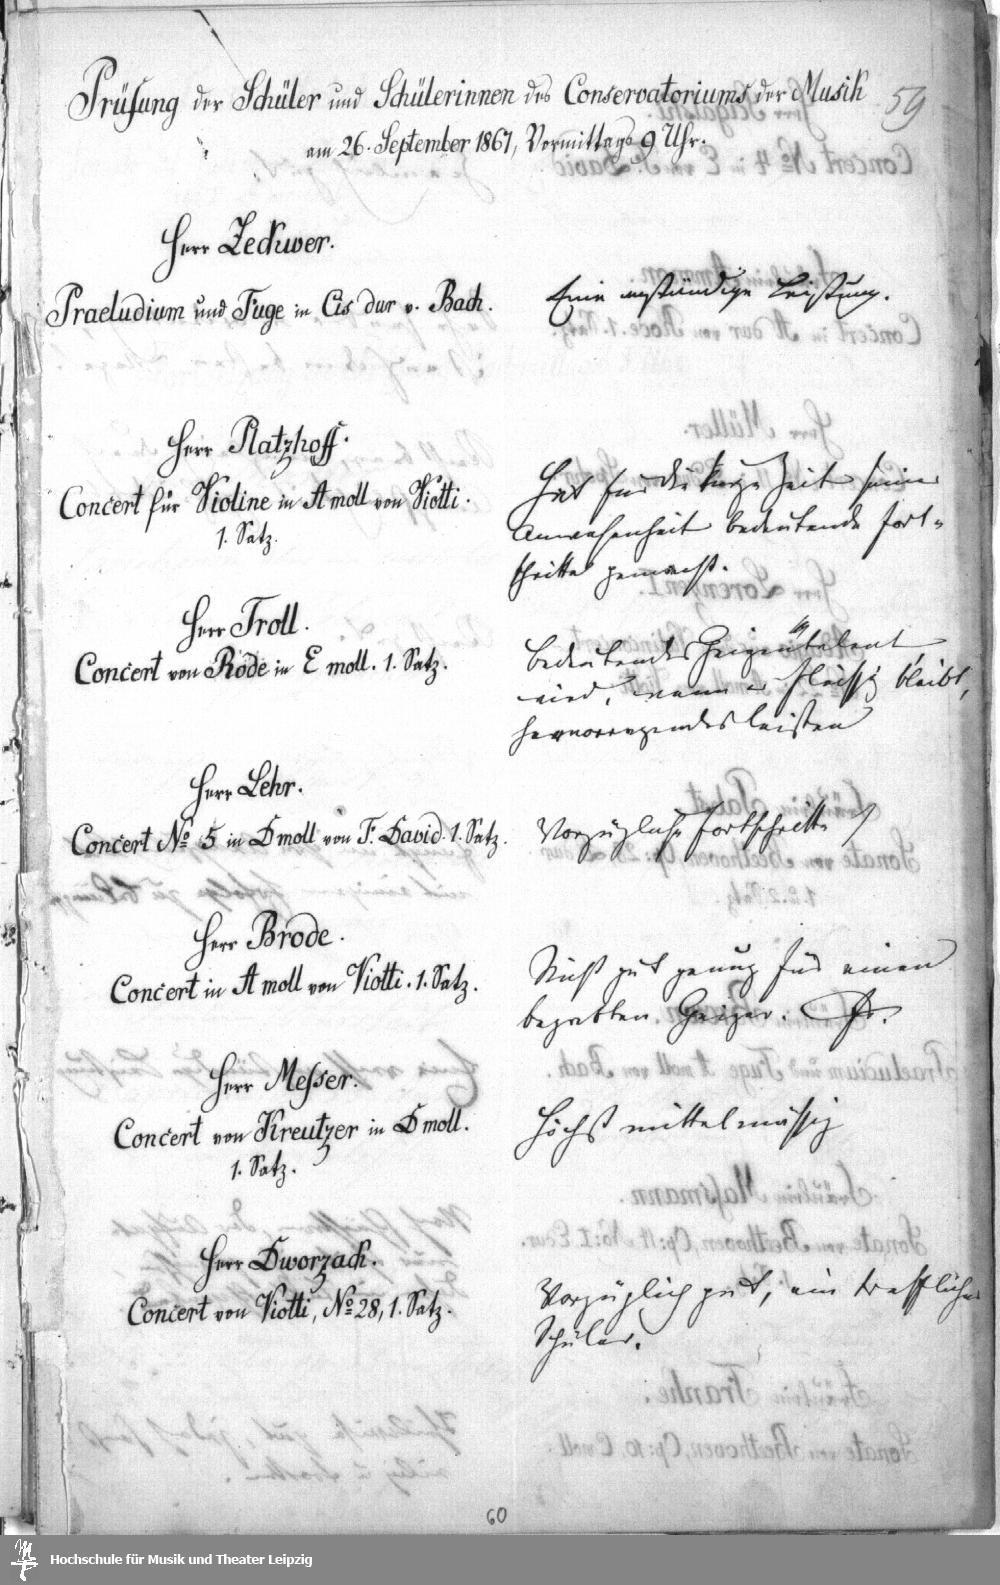 Prüfung der Schüler und Schülerinnen des Conservatoriums der Musik
59
am 26. September 1867, Vormittags 9 Uhr.
Herr Zeckwer.
Praeludium und Fuge in Cis dur v. Bach.
Eine anständige Leistung.
Herr Ratzhoff.
Concert für Violine in A moll von Viotti.
1. Satz.
Hat für die kurze Zeit seiner
Anwesenheit bedeutende Fort-
schritte gemacht.
Herr Troll.
Concert von Rode in E moll. 1. Satz.
bedeutendes Geigentalent
wird, wenn er fleissig bleibt,
hervorragendes leisten
Herr Lehr.
Concert No 5 in D moll von F. David. 1. Satz.
Vorzügliche Fortschritte
Herr Brode.
Concert in A moll von Viotti. 1. Satz.
Nicht gut genug für einen
begabten Geiger.
Herr Messer.
Concert von Kreutzer in D moll.
1. Satz.
Höchst mittelmässig
Herr Dworzack.
Concert von Viotti, No 28, 1. Satz.
Vorzüglich gut, ein trefflicher
Schüler.
60
Hochschule für Musik und Theater Leipzig